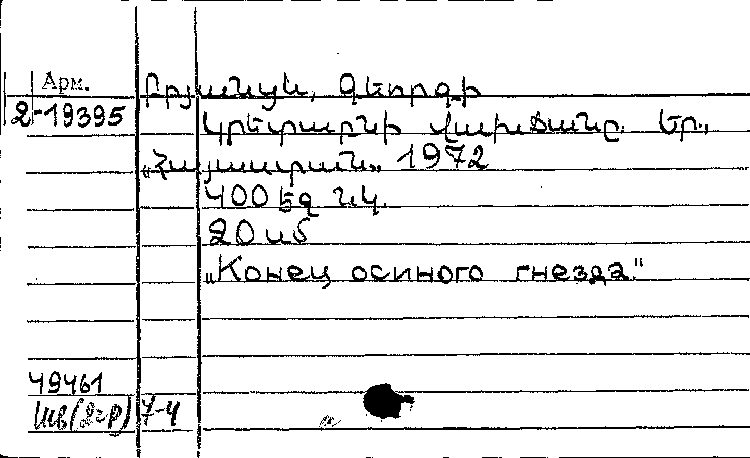 Арм.
2-19395
Բրյանցև, Գեորգի
Կրետարնի վախճանը. Եր.,
„Հայաստան„ 1972
400 եզ նկ.
20 սմ
„Конец осиного гнезда."
49461
7-4